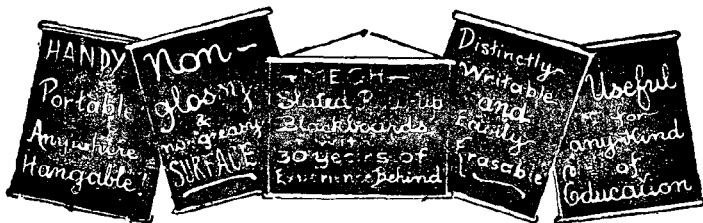 HANDY
Portable
Anywhere
Hangable!
Non-
glossy
&
non-greasy
SURFACE
-MECH-
Slated Roll-up
Blackboards
with
30 years of
Experience Behind
Distinctly
Writable
and
Easily
Erasable
Useful
for
any-kind
of
Education